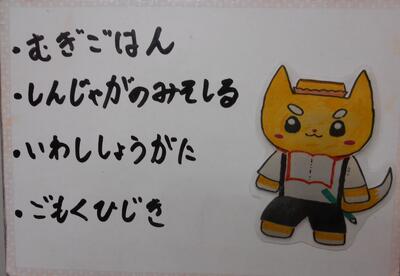 ・むぎごはん
・しんじゃがのみそしる
・いわししょうがに
・ごもくひじき